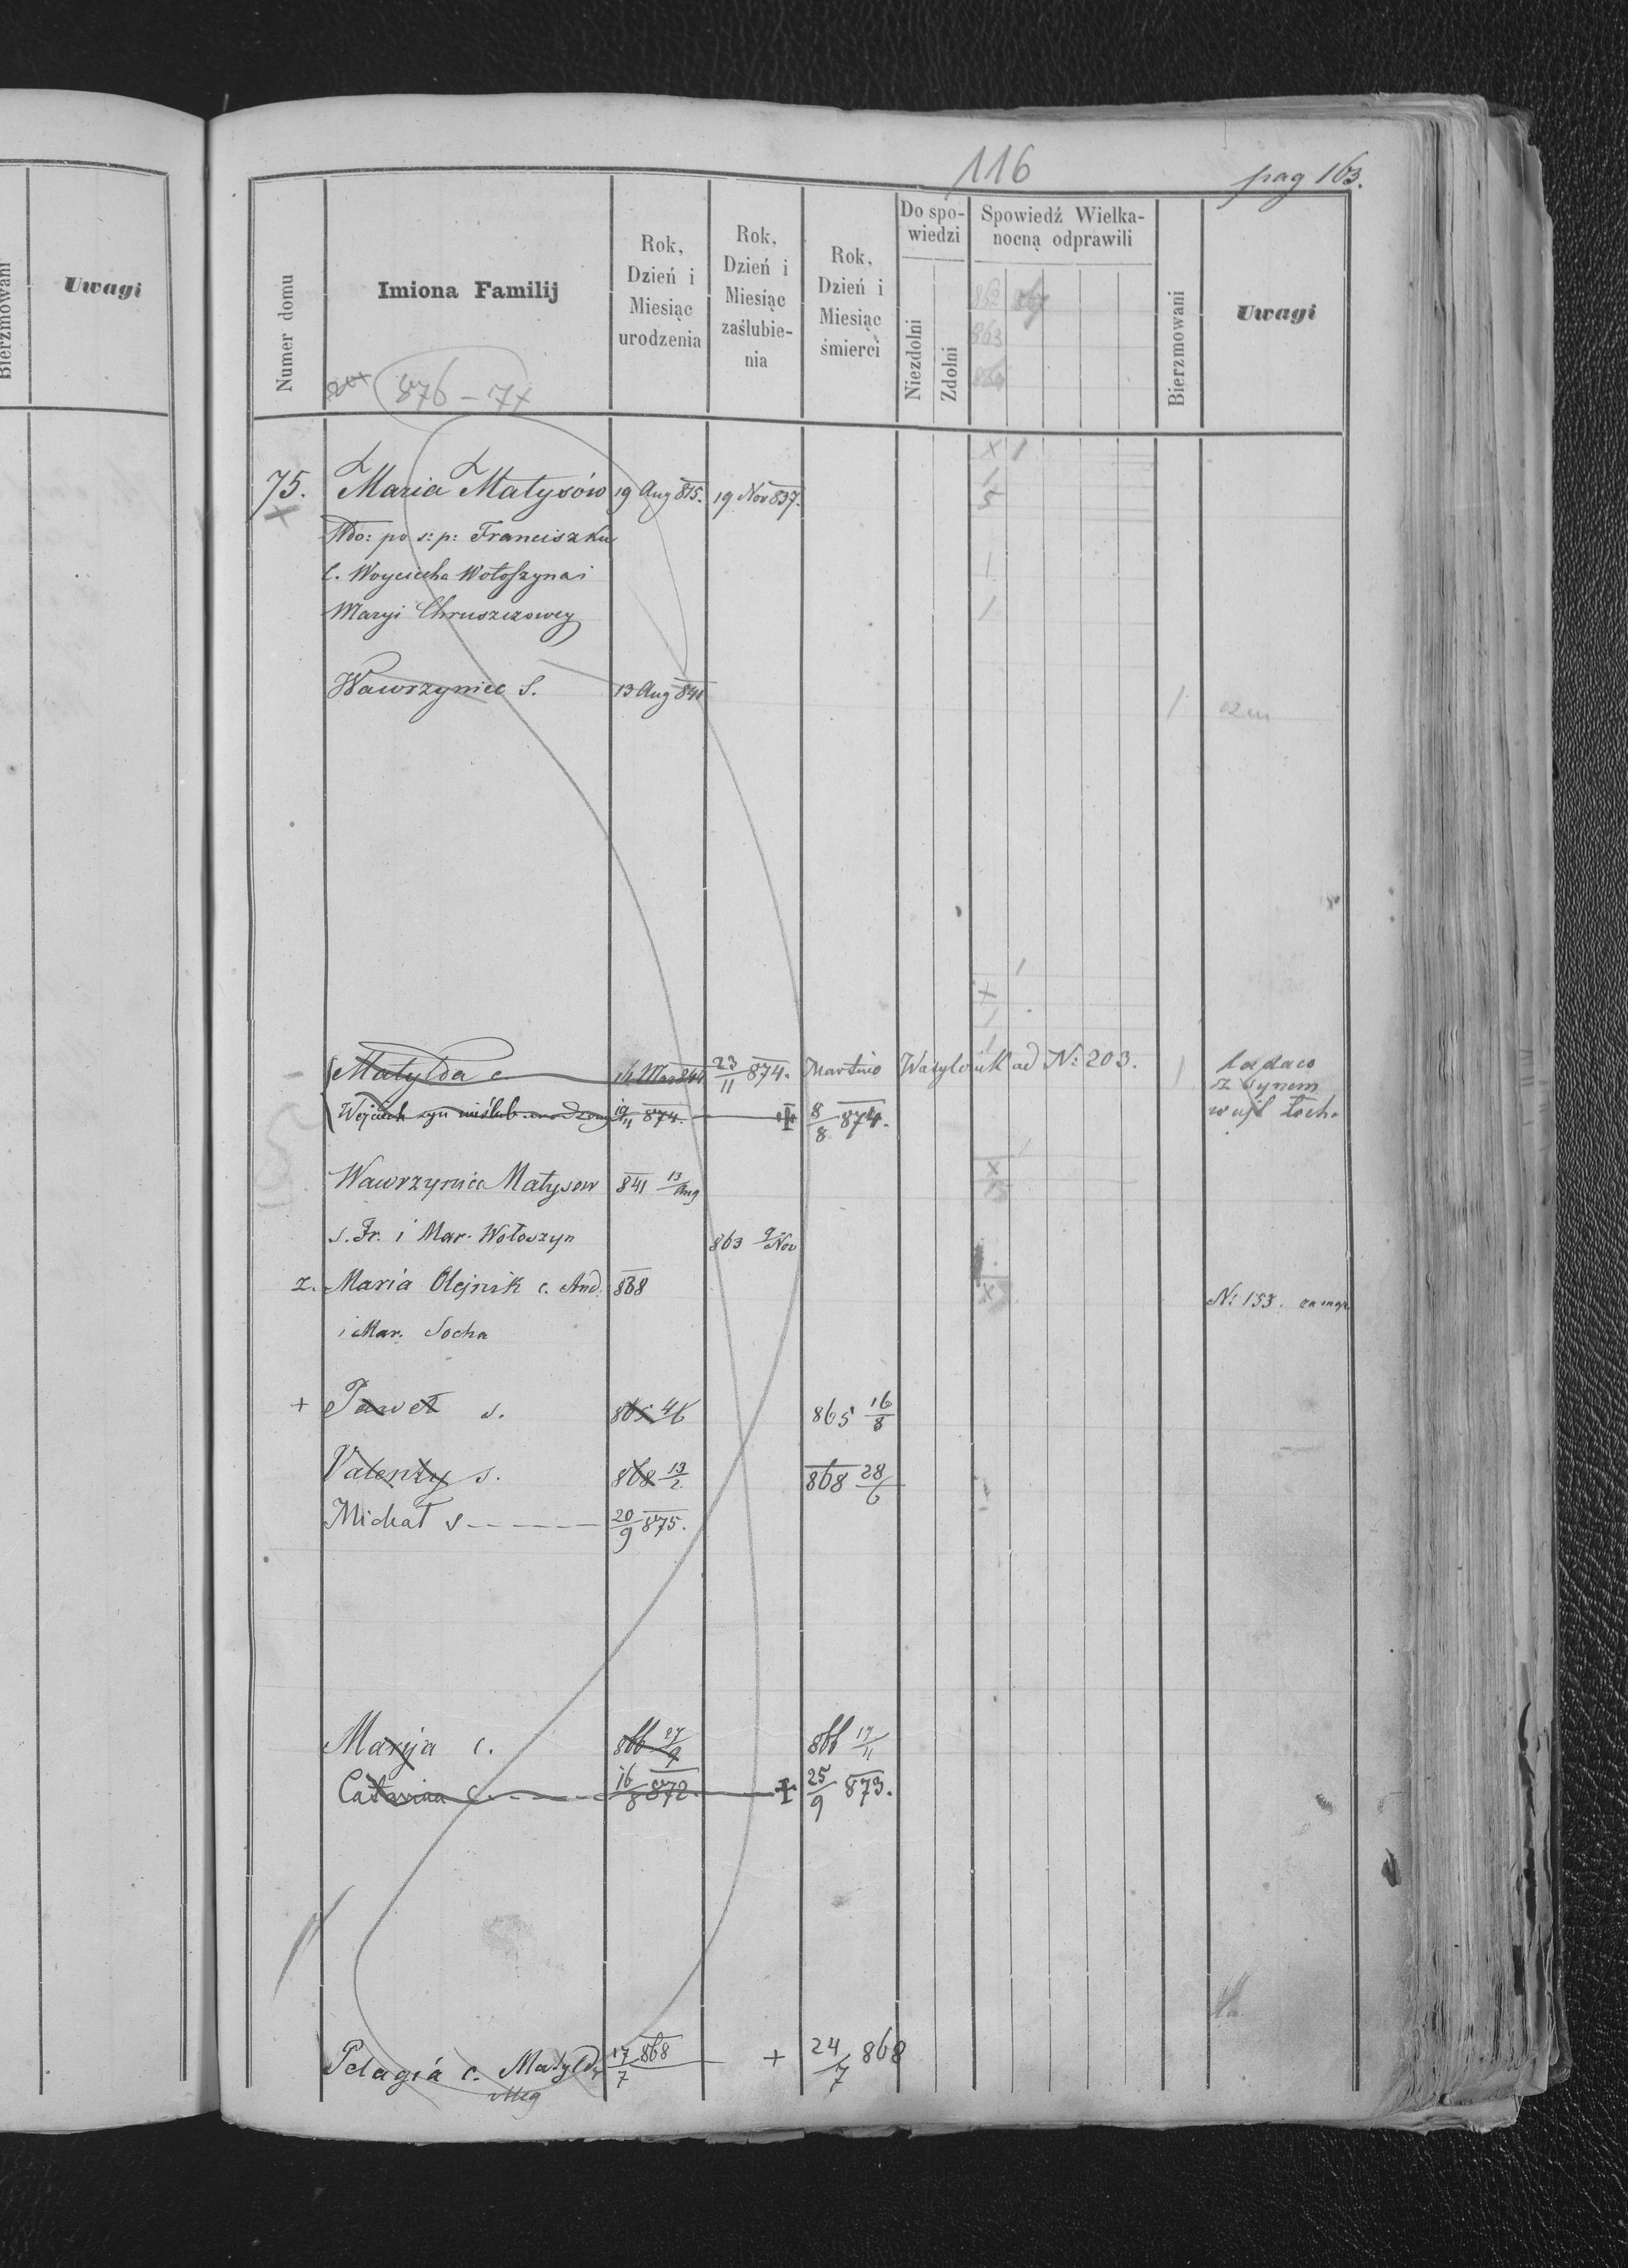 116
pag 163.
Bierzmowani
Uwagi
Numer domu
Imiona Familij
Rok, Dzień i Miesiąc urodzenia
Rok, Dzień i Miesiąc zaślubie-nia
Rok, Dzień i Miesiąc śmierci
Do spo-wiedzi
Niezdolni
Zdolni
Spowiedź Wielka-nocną odprawili
863
Bierzmowani
Uwagi
876 - 7x
75. Maria Matysów 19 Aug 815. 19 Nov 837.
Wdo: po s: p: Franciszku
C. Woyciecha Wołoszyna i
Maryi Chruszczowey
Wawrzyniec S. 13 Aug 841
Matylda c. 16 Mar 844 23/11 874. Martino Wasylciuk ad N: 203.
z synem
Wojciech syn nieślub. urodzony 19/4 874. + 8/8 874.
Wawrzyniec Matysow 841 13/Aug
s. Fr. i Mar. Wołoszyn 863 9/Nov
z. Maria Olejnik c. And. 868 N: 153.
i Mar. Socha
+ Paweł s. 865 4/6 865 16/8
Valenty s. 868 13/2 868 28/6
Michał s 20/9 875.
Marija c. 866 27/9 866 17/11
Catarina c. 16/8 872. + 25/9 873.
Pelagia c. Matyldy 17/7 868 + 24/7 868
illeg